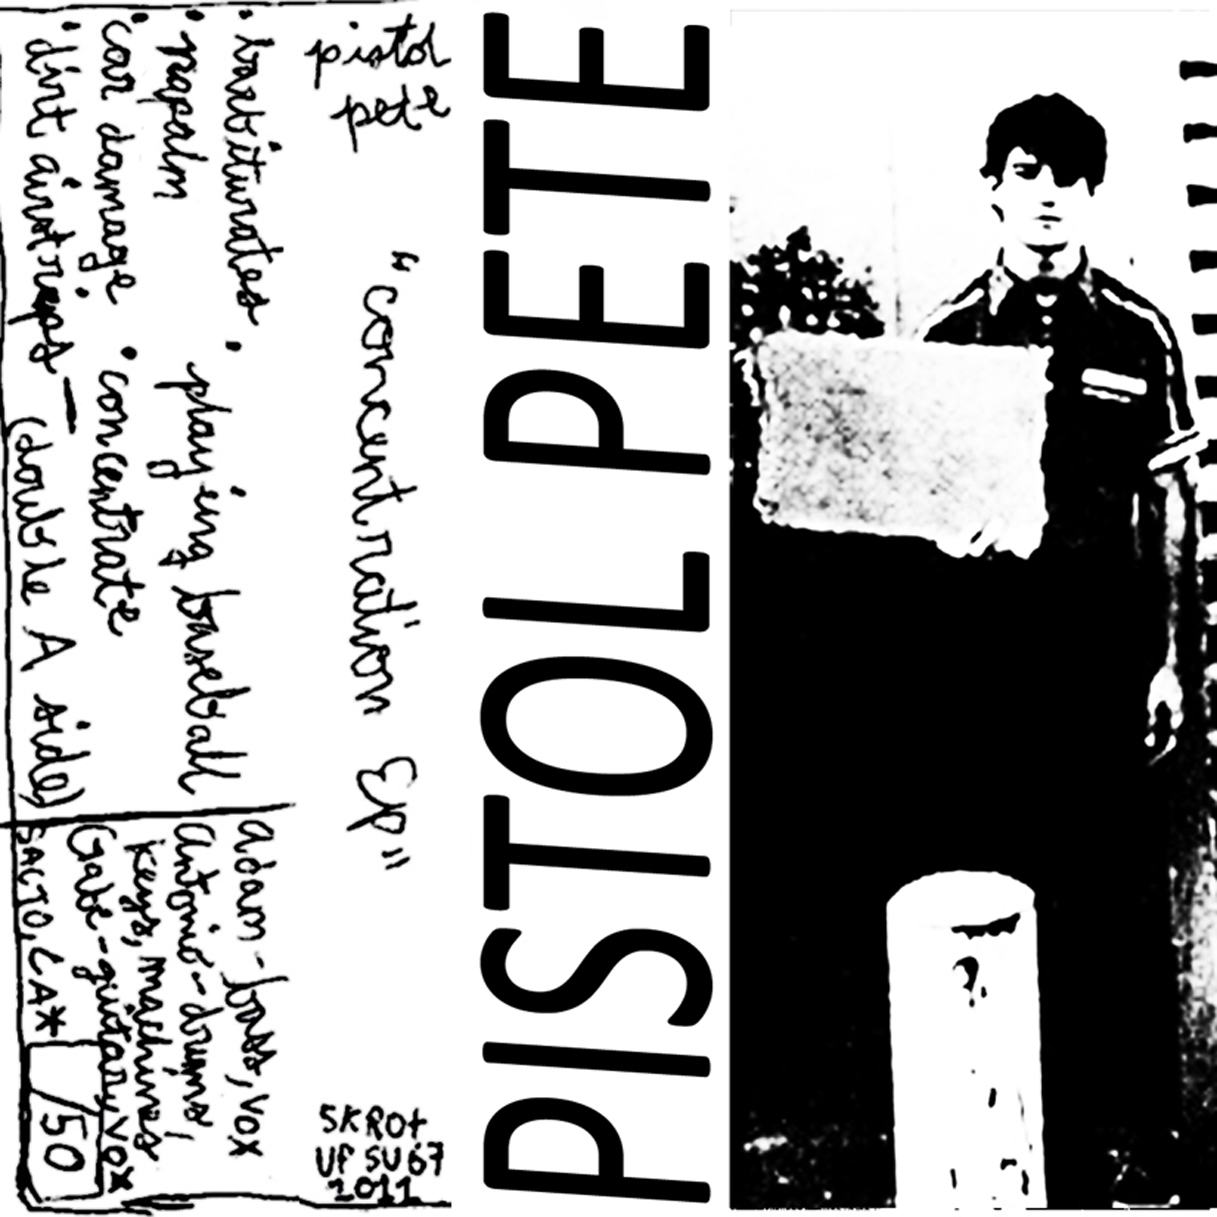 pistol
pete
"concentration EP"
• barbiturates • playing baseball
• napalm
• car damage • concentrate
• dirt airstrips — (double A side)
Adam - bass, vox
Antonio - drums,
keys, machines
Gabe - guitar, vox
SACTO, CA*
/50
SKROt
UP SU67
1011
PISTOL PETE